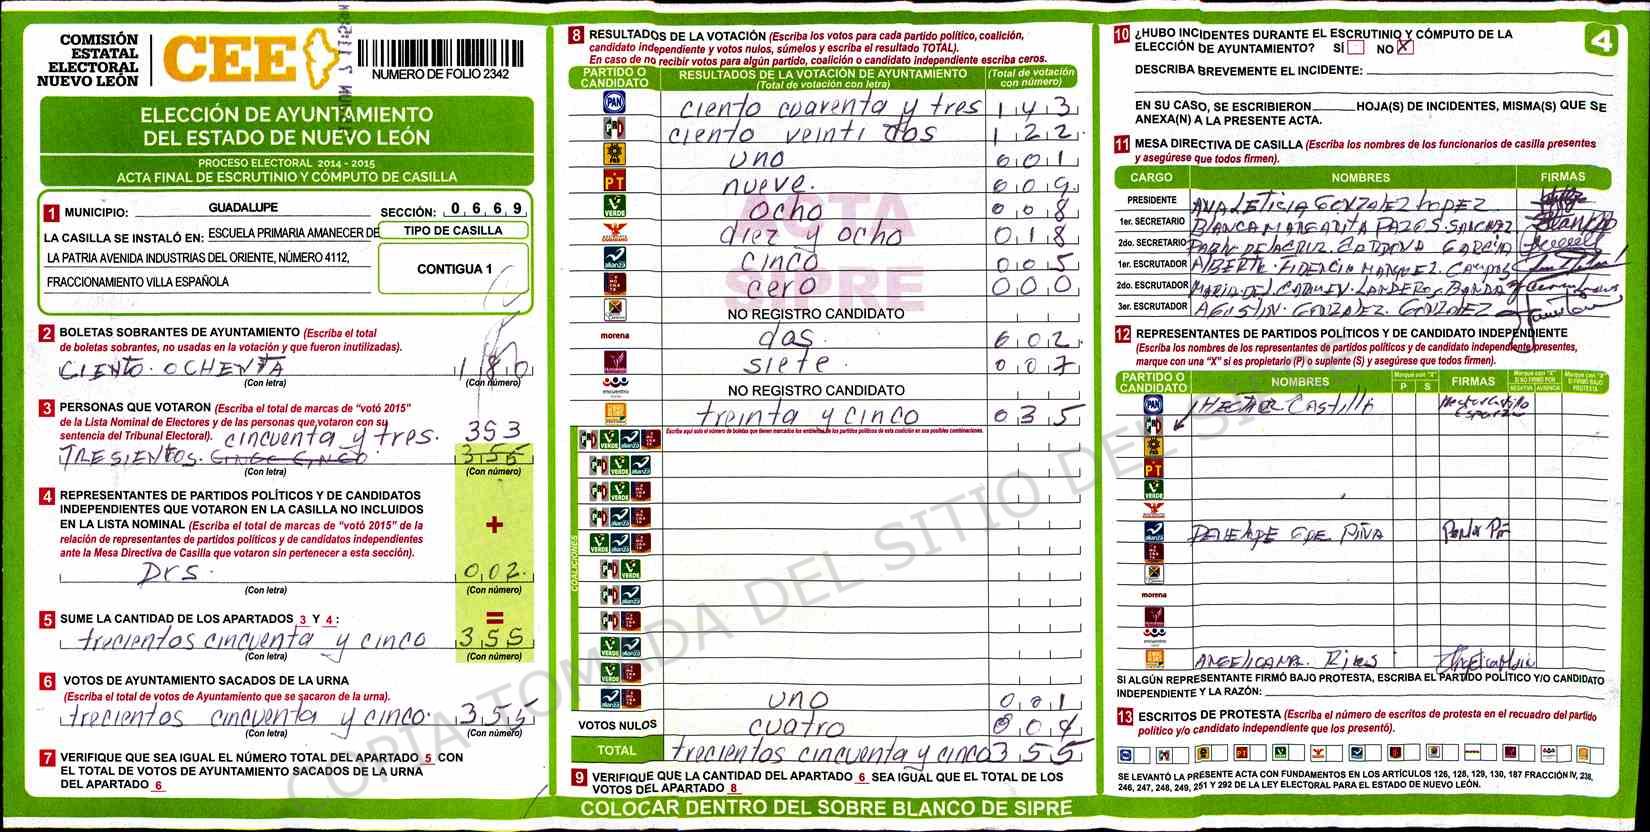 COMISIÓN
ESTATAL
ELECTORAL
NUEVO LEÓN
CEE
NUMERO DE FOLIO 2342
ELECCIÓN DE AYUNTAMIENTO
DEL ESTADO DE NUEVO LEÓN
PROCESO ELECTORAL 2014 - 2015
ACTA FINAL DE ESCRUTINIO Y CÓMPUTO DE CASILLA
1 MUNICIPIO: GUADALUPE SECCIÓN: 0 6 6 9
LA CASILLA SE INSTALÓ EN: ESCUELA PRIMARIA AMANECER DE
LA PATRIA AVENIDA INDUSTRIAS DEL ORIENTE, NÚMERO 4112,
FRACCIONAMIENTO VILLA ESPAÑOLA
TIPO DE CASILLA
CONTIGUA 1
2 BOLETAS SOBRANTES DE AYUNTAMIENTO (Escriba el total
de boletas sobrantes, no usadas en la votación y que fueron inutilizadas).
CIENTO OCHENTA 1 8 0
(Con letra) (Con número)
3 PERSONAS QUE VOTARON (Escriba el total de marcas de "votó 2015"
de la Lista Nominal de Electores y de las personas que votaron con su
sentencia del Tribunal Electoral). cincuenta y tres. 353
TRESIENTOS. CINCO 355
(Con letra) (Con número)
4 REPRESENTANTES DE PARTIDOS POLÍTICOS Y DE CANDIDATOS
INDEPENDIENTES QUE VOTARON EN LA CASILLA NO INCLUIDOS
EN LA LISTA NOMINAL (Escriba el total de marcas de "votó 2015" de la
relación de representantes de partidos políticos y de candidatos independientes
ante la Mesa Directiva de Casilla que votaron sin pertenecer a esta sección).
+
Dos. 0 0 2
(Con letra) (Con número)
=
5 SUME LA CANTIDAD DE LOS APARTADOS 3 Y 4:
trecientos cincuenta y cinco 3 5 5
(Con letra) (Con número)
6 VOTOS DE AYUNTAMIENTO SACADOS DE LA URNA
(Escriba el total de votos de Ayuntamiento que se sacaron de la urna).
trecientos cincuenta y cinco. 3 5 5
(Con letra) (Con número)
7 VERIFIQUE QUE SEA IGUAL EL NÚMERO TOTAL DEL APARTADO 5 CON
EL TOTAL DE VOTOS DE AYUNTAMIENTO SACADOS DE LA URNA
DEL APARTADO 6
8 RESULTADOS DE LA VOTACIÓN (Escriba los votos para cada partido político, coalición,
candidato independiente y votos nulos, súmelos y escriba el resultado TOTAL).
En caso de no recibir votos para algún partido, coalición o candidato independiente escriba ceros.
PARTIDO O CANDIDATO
RESULTADOS DE LA VOTACIÓN DE AYUNTAMIENTO
(Total de votación con letra)
(Total de votación con número)
PAN ciento cuarenta y tres 1 4 3
ciento veinti dos 1 2 2
PRD uno 0 0 1
PT nueve. 0 0 9
VERDE ocho 0 0 8
diez y ocho 0 1 8
alianza cinco 0 0 5
cero 0 0 0
NO REGISTRO CANDIDATO
morena dos 0 0 2
siete. 0 0 7
NO REGISTRO CANDIDATO
treinta y cinco 0 3 5
Escriba aquí solo el número de boletas que tienen marcados los emblemas de los partidos políticos de esta coalición en sus posibles combinaciones.
COALICIONES
uno 0 0 1
VOTOS NULOS cuatro 0 0 4
TOTAL trecientos cincuenta y cinco 3 5 5
9 VERIFIQUE QUE LA CANTIDAD DEL APARTADO 6 SEA IGUAL QUE EL TOTAL DE LOS
VOTOS DEL APARTADO 8
COLOCAR DENTRO DEL SOBRE BLANCO DE SIPRE
ACTA
SIPRE
COPIA TOMADA DEL SITIO DEL SIPRE
10 ¿HUBO INCIDENTES DURANTE EL ESCRUTINIO Y CÓMPUTO DE LA
ELECCIÓN DE AYUNTAMIENTO? SÍ NO X
4
DESCRIBA BREVEMENTE EL INCIDENTE:
EN SU CASO, SE ESCRIBIERON HOJA(S) DE INCIDENTES, MISMA(S) QUE SE
ANEXA(N) A LA PRESENTE ACTA.
11 MESA DIRECTIVA DE CASILLA (Escriba los nombres de los funcionarios de casilla presentes
y asegúrese que todos firmen).
CARGO NOMBRES FIRMAS
PRESIDENTE ANA LETICIA GONZALEZ LOPEZ
1er. SECRETARIO BLANCA MARGARITA PAZOS SANCHEZ
2do. SECRETARIO GARCIA
1er. ESCRUTADOR ALBERTO FIDENCIO MARQUEZ CAMPOS
2do. ESCRUTADOR MARIA DEL CARMEN LANDEROS BANDA
3er. ESCRUTADOR AGUSTIN GONZALEZ GONZALEZ
12 REPRESENTANTES DE PARTIDOS POLÍTICOS Y DE CANDIDATO INDEPENDIENTE
(Escriba los nombres de los representantes de partidos políticos y de candidato independiente presentes,
marque con una "X" si es propietario (P) o suplente (S) y asegúrese que todos firmen).
PARTIDO O CANDIDATO NOMBRES P S FIRMAS
PAN HECTOR CASTILLO
morena
SI ALGÚN REPRESENTANTE FIRMÓ BAJO PROTESTA, ESCRIBA EL PARTIDO POLÍTICO Y/O CANDIDATO
INDEPENDIENTE Y LA RAZÓN:
13 ESCRITOS DE PROTESTA (Escriba el número de escritos de protesta en el recuadro del partido
político y/o candidato independiente que los presentó).
SE LEVANTÓ LA PRESENTE ACTA CON FUNDAMENTOS EN LOS ARTÍCULOS 126, 128, 129, 130, 187 FRACCIÓN IV, 238,
246, 247, 248, 249, 251 Y 292 DE LA LEY ELECTORAL PARA EL ESTADO DE NUEVO LEÓN.